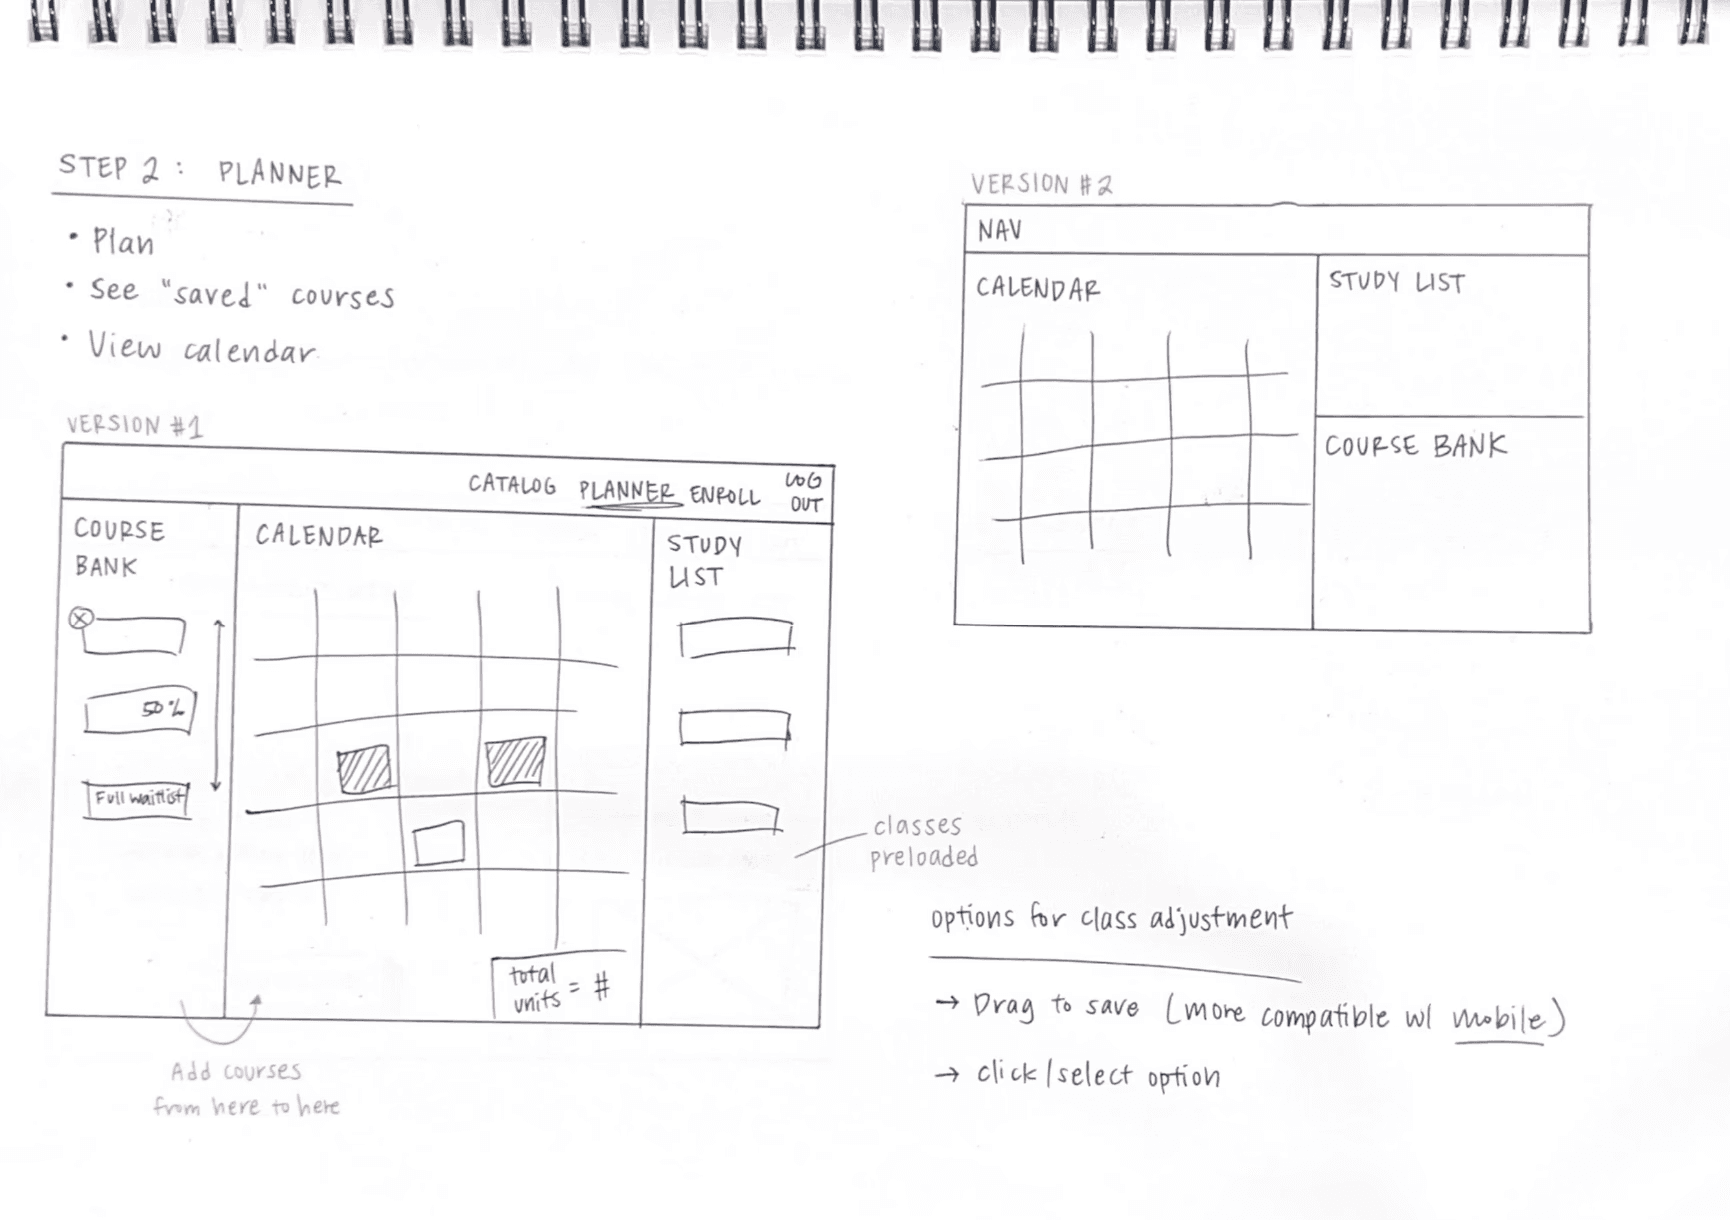 STEP 2 : PLANNER
• Plan
• See "saved" courses
• View calendar
VERSION #1
CATALOG PLANNER ENROLL LOG OUT
COURSE
BANK
50%
Full waitlist
CALENDAR
total
units = #
STUDY
LIST
classes
preloaded
Add courses
from here to here
VERSION #2
NAV
CALENDAR
STUDY LIST
COURSE BANK
options for class adjustment
→ Drag to save (more compatible w/ mobile)
→ click/select option